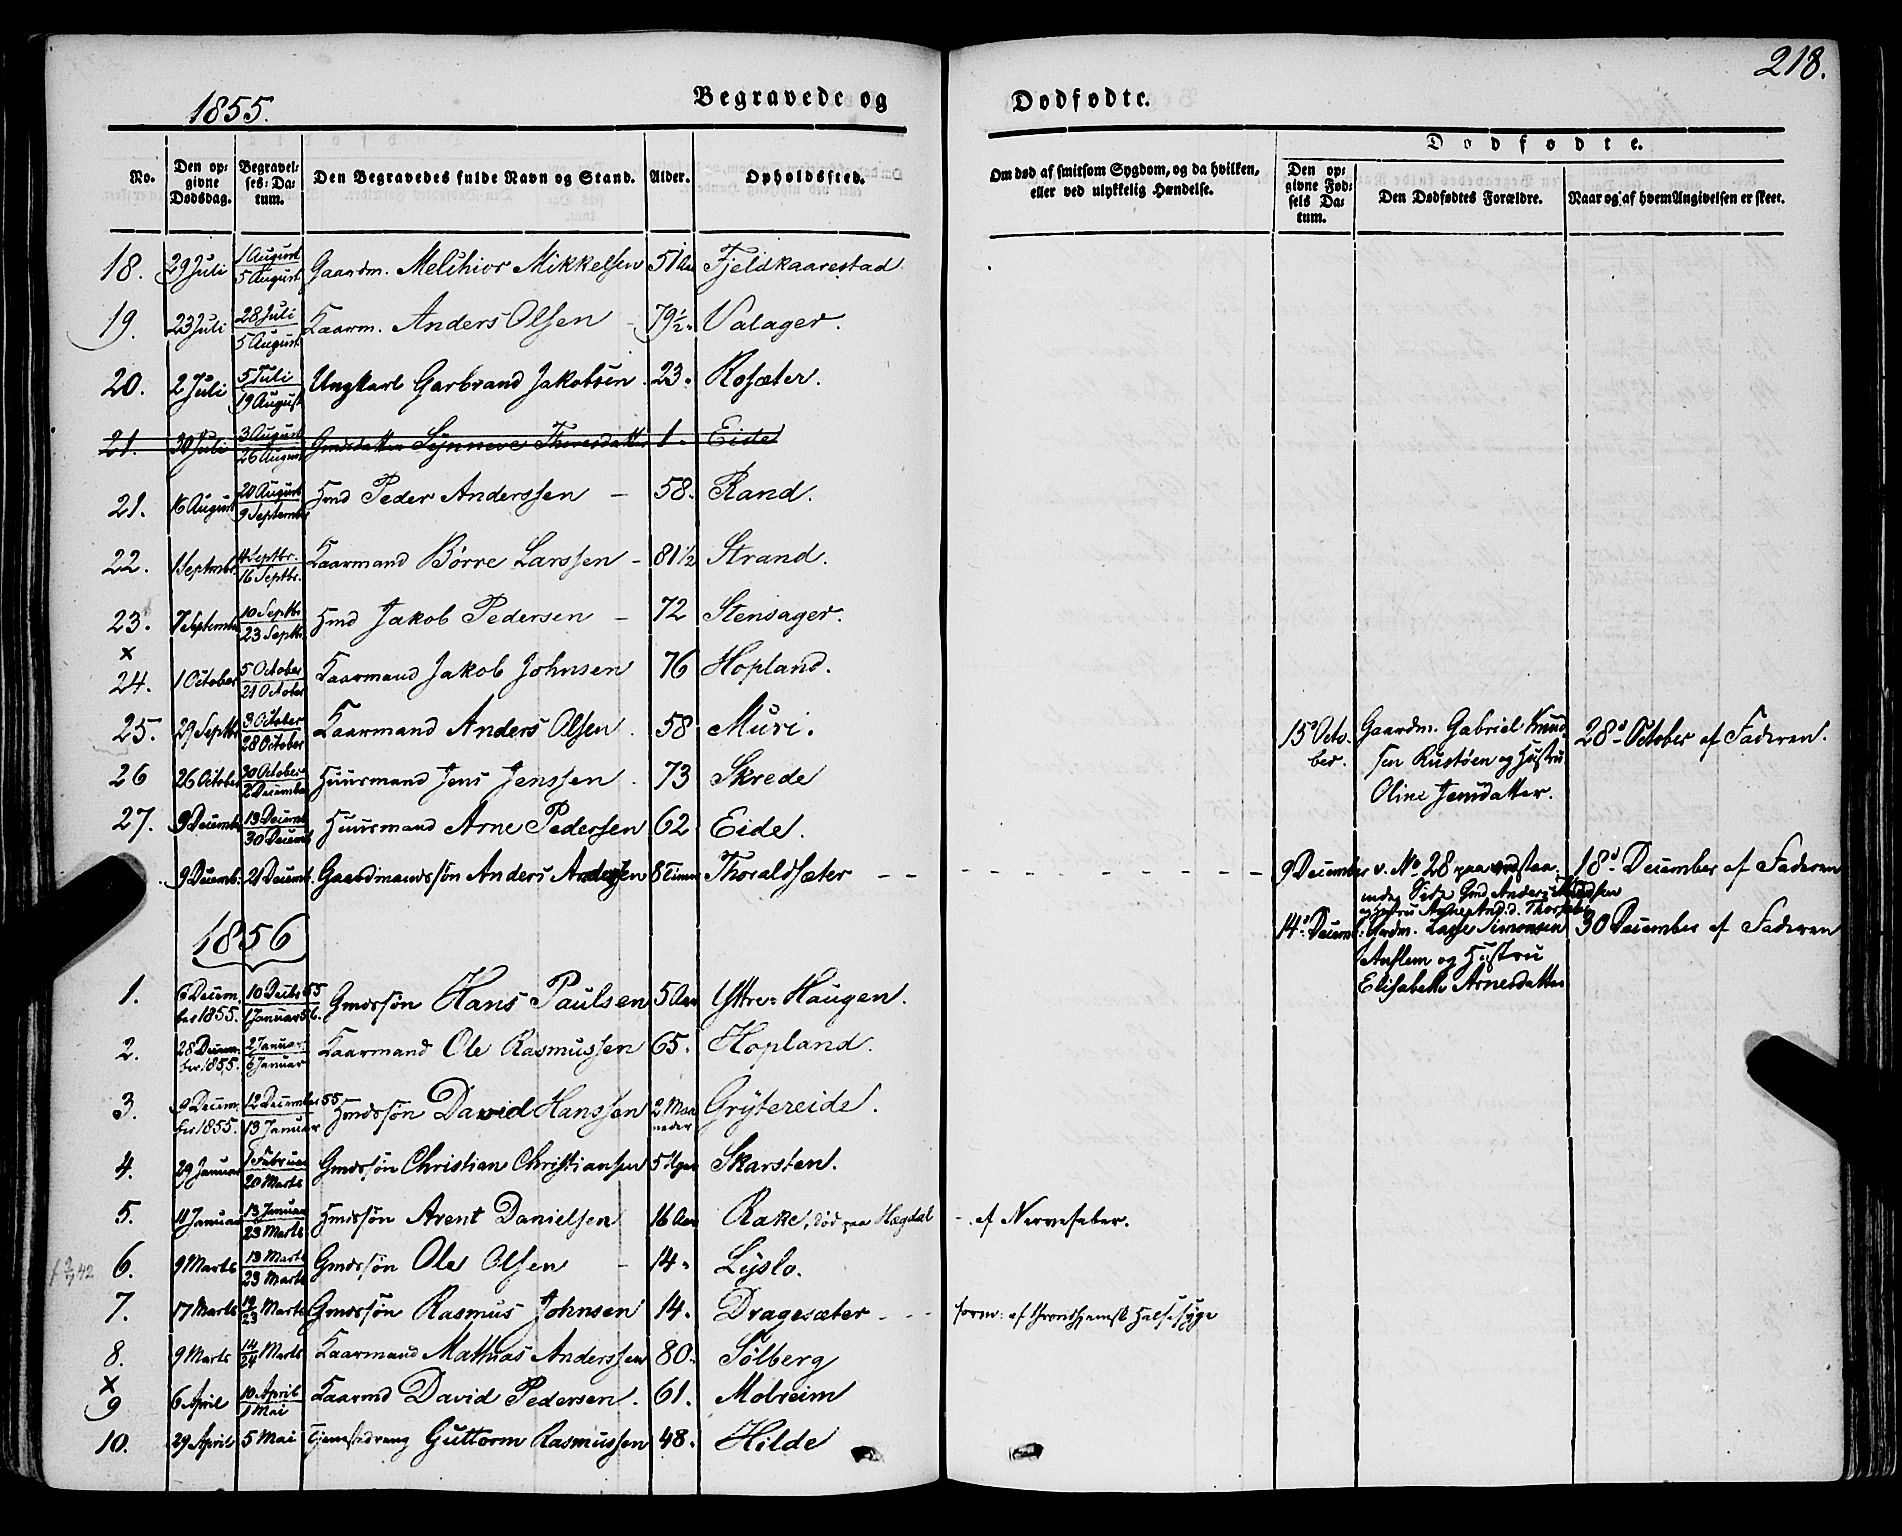 218.
1855. Begravede og Dødfødte.
Dødfødte.
No. Den opgivne Dødsdag. Begravelses-Datum. Den Begravedes fulde Navn og Stand. Alder. Opholdssted. Om død af smitsom Sygdom, og da hvilken, eller ved ulykkelig Hændelse. Den opgivne Fødsels Datum. Den Dødfødtes Forældre. Naar og af hvem Angivelsen er skeet.
18. 29 Juli 1 August 5 August Gaardm. Melchior Mikkelsen 51 Aar Fjeldkaarestad
19. 23 Juli 28 Juli 5 August Kaarm. Anders Olsen - 79½ Valager.
20. 2 Juli 5 Juli 19 August Ungkarl Garbrand Jakobsen 23. Rosæter.
21. 30 Juli 3 August 26 August Gmdsdatter Synneve Theresdatter 1. Eide
21. 16 August 20 August 9 September Hmd Peder Anderssen - 58. Rand.
22. 1 Septmbr. 4 Septbr. 16 Septbr. Kaarmand Børre Larssen - 81½ Strand.
23. 7 Septembr 10 Septbr 23 Septbr. Hmd Jakob Pedersen - 72 Stensager.
x
24. 1 October 5 October 21 October Kaarmand Jakob Johnsen 76 Hopland.
25. 29 Septbr 3 October 28 October Kaarmand Anders Olsen. 58 Muri.
26 26 October 30 October 2 December Huusmand Jens Jenssen. 73 Skrede
27. 9 Decemb. 13 Decemb 30 Decemb Huusmand Arne Pedersen 62 Eide.
9 Decemb: 21 Decemb. Gaardmandssøn Anders Andersen 8 Timer Thoraldsæter - -
13d Octo- Gaardm. Gabriel Knud- 28d October af Faderen.
ber. sen Rustøen og Hustru
Oline Jensdatter.
9 December v. No 28 paa modstaa- 18d December af Faderen
ende Side Gmd. Anders
og Hustru
14d Decemb: Gaardm. Lasse Simonsen 30 December af Faderen
Anflem og Hustru
Elisabeth Arnesdatter
1856
1. 6 Decem- 10 Decbr 55 Gmdssøn Hans Paulsen 5 Aar Yttre-Haugen.
ber 1855. 1 Januar 56.
2. 28 Decem- 2 Januar Kaarmand Ole Rasmussen 65. Hopland.
ber 1855. 6 Januar
3. 9 Decem- 12 December 55 Hmdssøn David Hanssen 2 Maa- Grytereide.
ber 1855. 13 Januar neder
4. 29 Januar 1 Februar 20 Marts Gmdssøn Christian Christiansen 5 Uger Skarsten.
5. 11 Januar 13 Januar 23 Marts Hmdssøn Arent Danielsen 16 Aar Rake, død paa Hægdal - af Nervefeber.
6. 9 Marts 13 Marts 23 Marts Gmdssøn Ole Olsen - 14. Lyslo.
7. 17 Marts 19 23 Marts Gmdssøn Rasmus Johnsen 14. Dragesæter - - form: af thronthjemsk Halssyge
8. 9 Marts 14 24 Marts Kaarmand Mathias Anderssen 80. Sølberg
x
9 6 April 10 April 1 Mai Kaarmd David Pedersen. 61. Molreim
10. 29 April 5 Mai Tjenestedreng Guttorm Rasmussen 48. Hilde